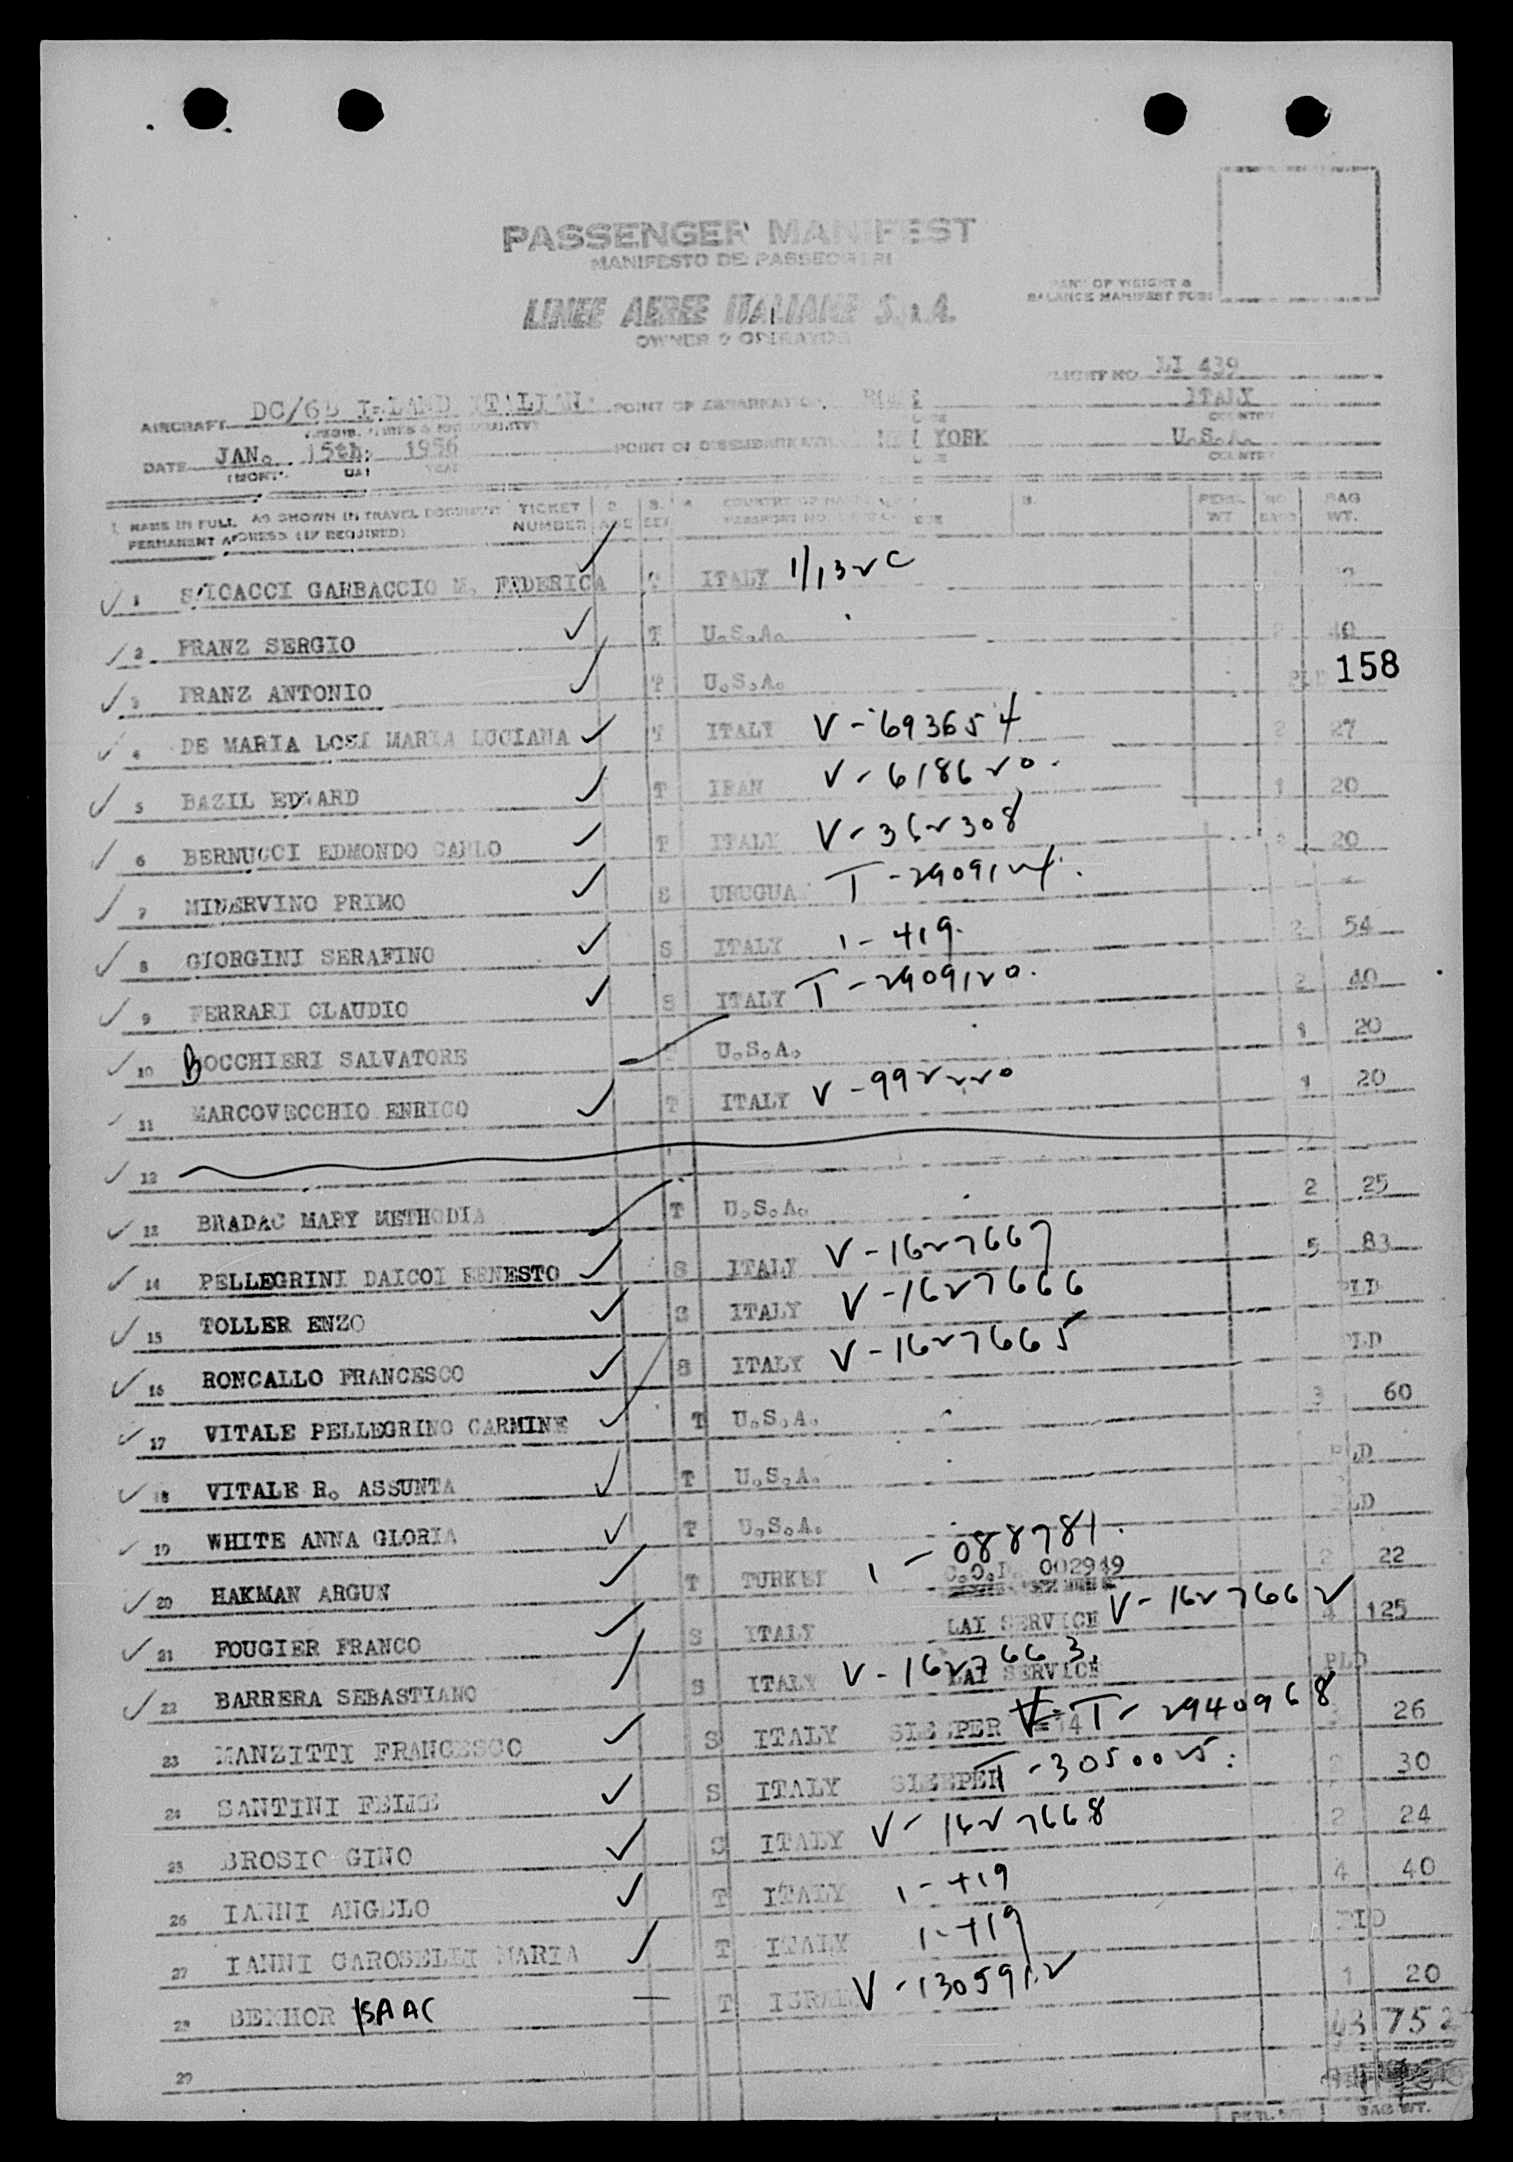 PASSENGER MANIFEST
MANIFESTO DEI PASSEGGERI
LINEE AEREE ITALIANE S.p.A.
OWNER & OPERATOR
PART OF WEIGHT &
BALANCE MANIFEST FORM
FLIGHT NO LI 439
AIRCRAFT DC/6B I-LAND ITALIAN POINT OF EMBARKATION ROME ITALY
COUNTRY
DATE JAN. 15th. 1956 POINT OF DISEMBARKATION NEW YORK U.S.A.
(MONTH DAY YEAR COUNTRY
1 NAME IN FULL AS SHOWN IN TRAVEL DOCUMENT TICKET 2 3. 4 COUNTRY OF 5. PERS. NO BAG
PERMANENT ADDRESS (IF REQUIRED) NUMBER AGE SEX PASSPORT NO WT BAGS WT.
1 GARBACCIO M. FEDERICA T ITALY 1/132C
2 FRANZ SERGIO T U.S.A. 2 40
3 FRANZ ANTONIO T U.S.A. PLD
158
4 DE MARIA LOSI MARIA LUCIANA T ITALY V-693654 2 27
5 BAZIL EDWARD T IRAN V-618620. 1 20
6 BERNUCCI EDMONDO CARLO T ITALY V-362308 20
7 MINERVINO PRIMO S URUGUAY T-2909124.
8 GIORGINI SERAFINO S ITALY 1-419. 2 54
9 FERRARI CLAUDIO S ITALY T-2909120. 2 40
10 BOCCHIERI SALVATORE U.S.A. 1 20
11 MARCOVECCHIO ENRICO T ITALY V-992220 1 20
12
13 BRADAC MARY METHODIA T U.S.A. 2 25
14 PELLEGRINI DAICOI ERNESTO S ITALY V-1627667 5 83
15 TOLLER ENZO S ITALY V-1627666 PLD
16 RONCALLO FRANCESCO S ITALY V-1627665 PLD
17 VITALE PELLEGRINO CARMINE T U.S.A. 3 60
18 VITALE R. ASSUNTA T U.S.A. PLD
19 WHITE ANNA GLORIA T U.S.A. PLD
20 HAKMAN ARGUN T TURKEY 1-088781. 2 22
002949
21 FOUGIER FRANCO S ITALY LAI SERVICE V-1627662 4 125
22 BARRERA SEBASTIANO S ITALY V-1627663. LAI SERVICE PLD
23 MANZITTI FRANCESCO S ITALY SLEEPER T-2940968 26
24 SANTINI FELICE S ITALY SLEEPER T-3050025. 2 30
25 BROSIO GINO S ITALY V-1627668 2 24
26 IANNI ANGELO T ITALY 1-419 4 40
27 IANNI CAROSELLI MARIA T ITALY 1-419 PLD
28 BENHOR ISAAC T ISRAEL V-1305912 1 20
43 752
29
BAG WT.